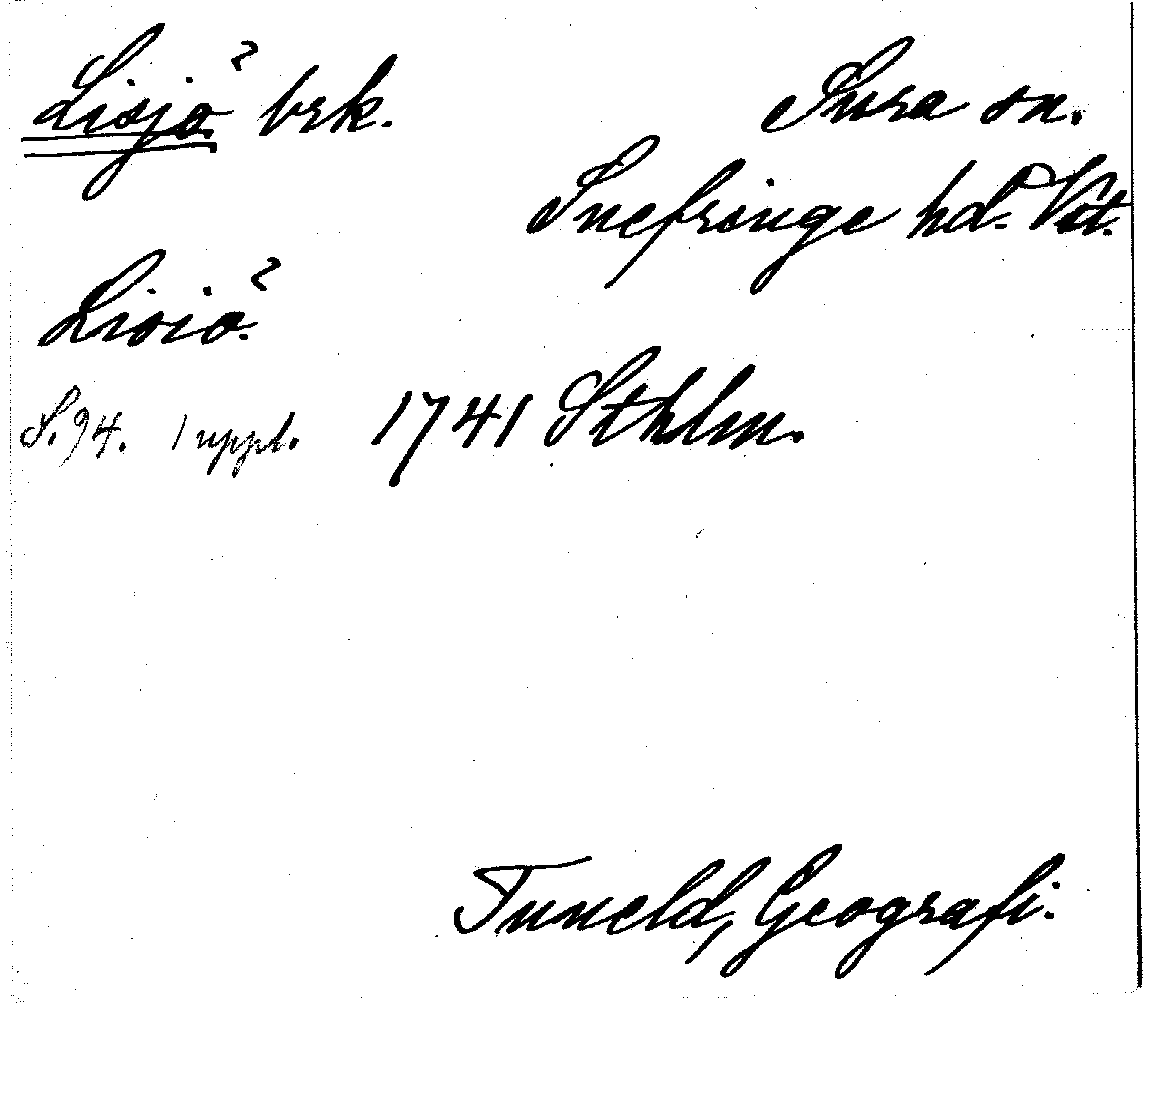 Lisjö brk.
Sura sn.
Snefringe hd. Vstm.
Lisiö.
S. 94. 1 uppl. 1741 Sthlm.
Tuneld, Geografi.